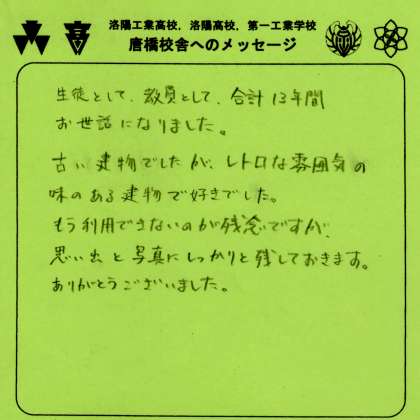 洛陽工業高校，洛陽高校，第一工業学校
唐橋校舎へのメッセージ
高
生徒として、教員として、合計13年間
お世話になりました。
古い建物でしたが、レトロな雰囲気の
味のある建物で好きでした。
もう利用できないのが残念ですが、
思い出と写真にしっかりと残しておきます。
ありがとうございました。